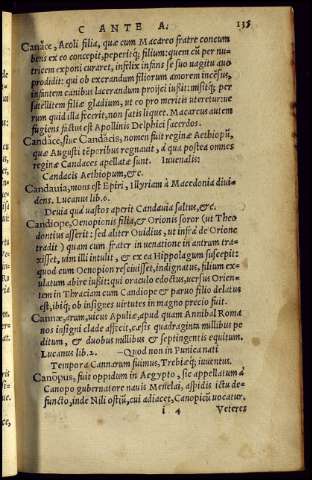 CANTE A. 135
Candace, Aeoli filia, quae cum Macareo fratre concum
bens ex eo concepit, peperitq; filium: quem cū per nu-
tricem exponi curaret, infelix infans se suo uagitu auo
prodidit: qui ob execrandum filiorum amorem incēsus,
infantem canibus lacerandum proijci iußit: misitq; per
satellitem filiae gladium, ut eo pro meritis uteretur: ue
rum quid illa fecerit, non satis liquet. Macareus autem
fugiens factus est Apollinis Delphici sacerdos.
Candace, siue Candacis, nomen fuit reginae Aethiopū,
quae Augusti tēporibus regnauit, à qua postea omnes
reginae Candaces appellatae sunt. Iuuenalis:
Candacis Aethiopum, &c.
Candauia, mons est Epiri, Illyriam à Macedonia diui-
dens. Lucanus lib. 6.
Deuia quà uastos aperit Candauia saltus, &c.
Candiope, Oenopionis filia, & Orionis soror (ut Theo
dontius asserit: sed aliter Ouidius, ut infrà de Orione
tradit) quam cum frater in uenatione in antrum tra-
xisset, uim illi intulit, & ex ea Hippolagum suscepit:
quod cum Oenopion resciuisset, indignatus, filium exu-
latum abire iußit: qui oraculo edoctus, uersus Orien-
tem in Thraciam cum Candiope & paruo filio delatus
est, ibiq; ob insignes uirtutes in magno precio fuit.
Cannae, arum, uicus Apuliae, apud quam Annibal Roma
nos insigni clade affecit, caesis quadraginta millibus pe
ditum, & duobus millibus & septingentis equitum.
Lucanus lib. 2. —Quod non in Punica nati
Tempora Cannarum fuimus, Trebiaeq; iuuentus.
Canopus, fuit oppidum in Aegypto, sic appellatum à
Canopo gubernatore nauis Menelai, aspidis ictu de-
functo, inde Nili ostiū, cui adiacet, Canopicū uocatur.
i 4 Veteres